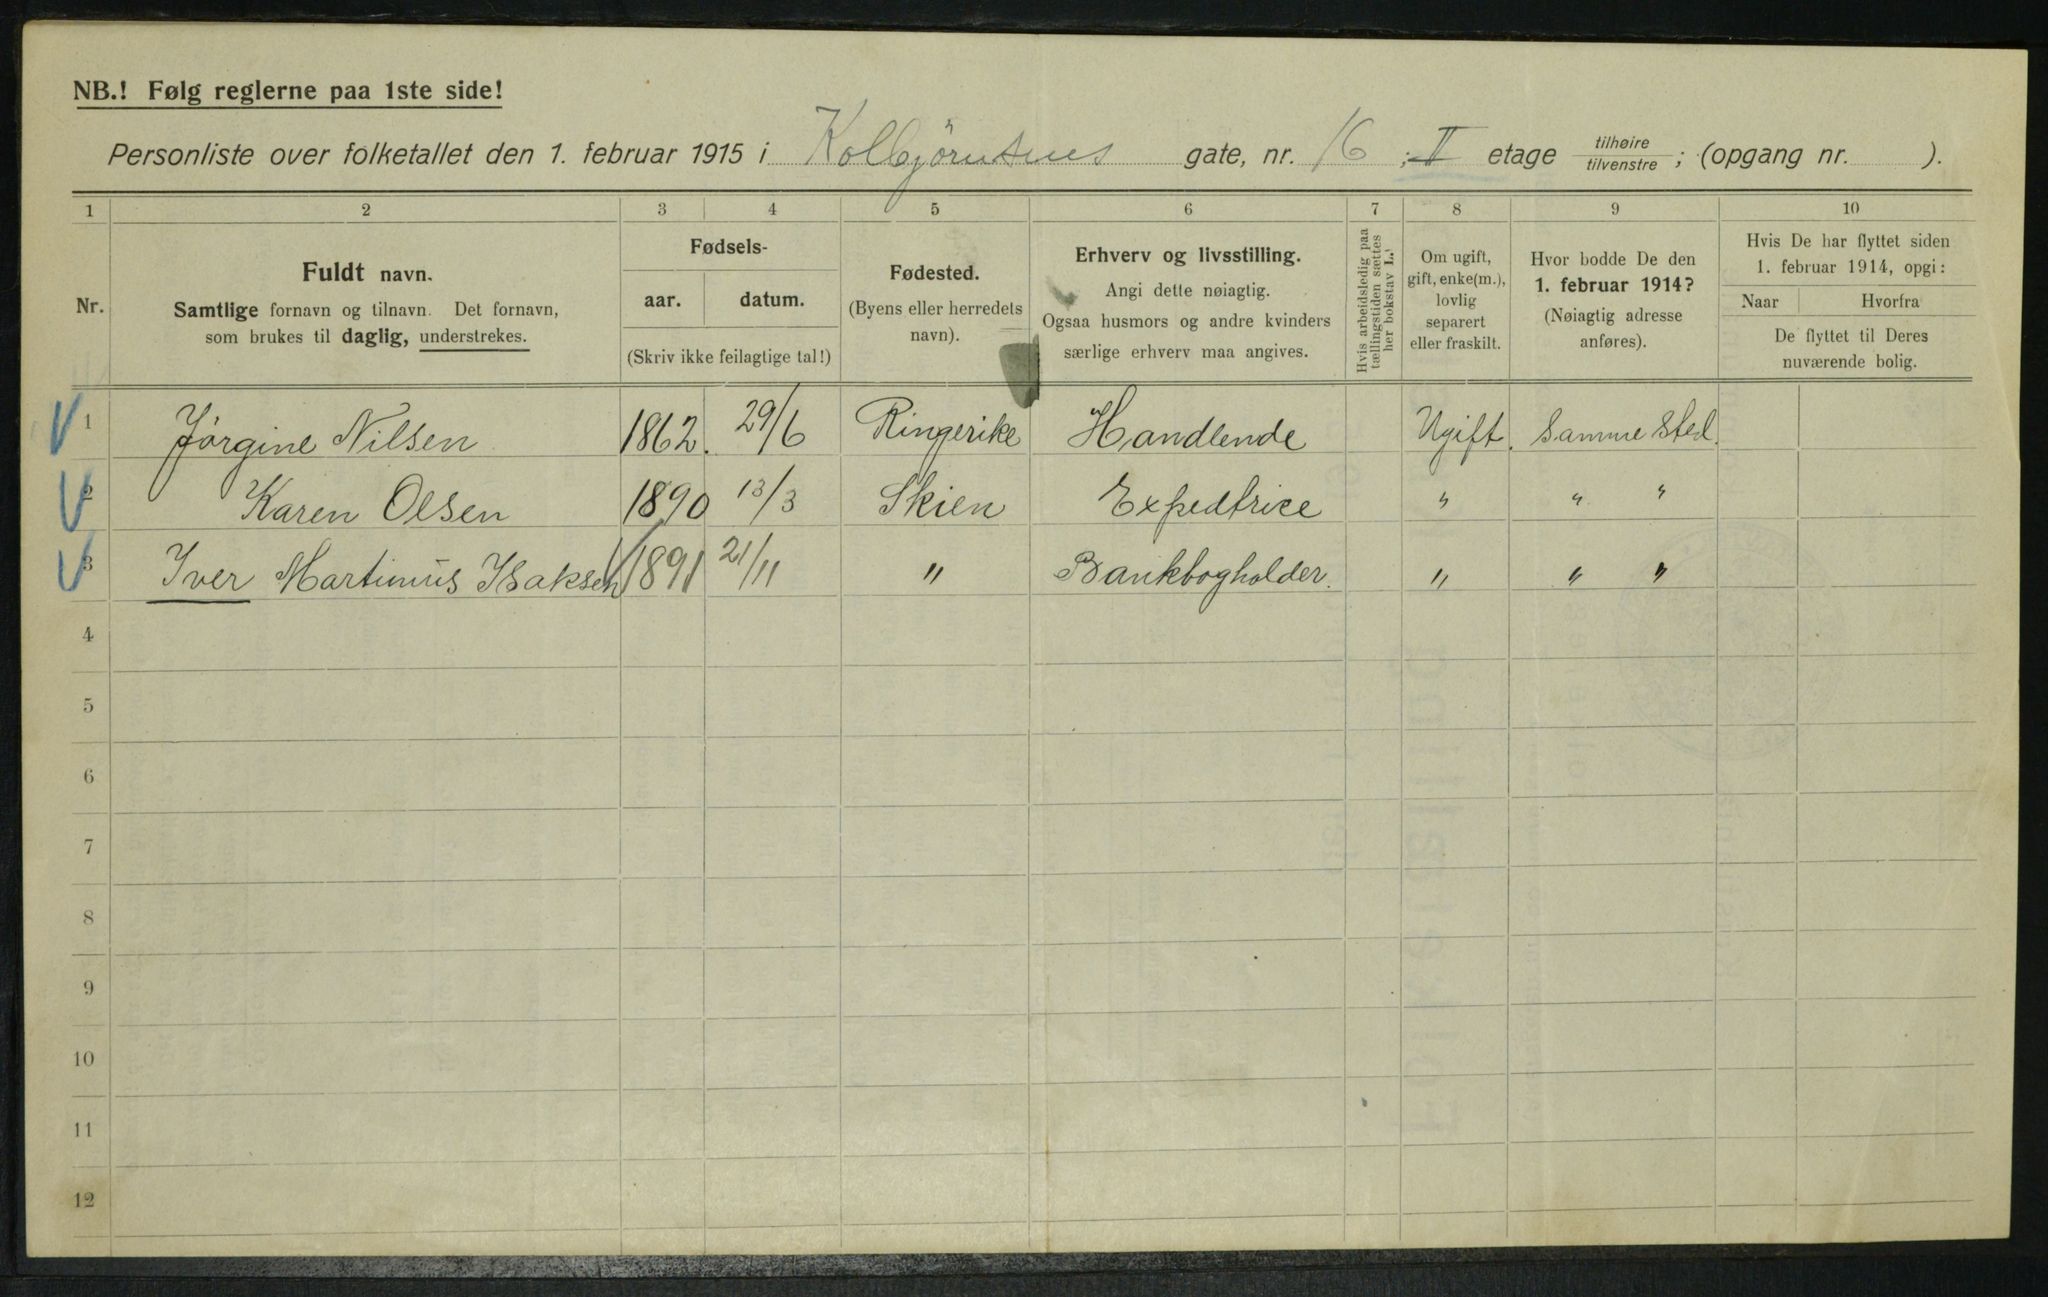 NB.! Følg reglerne paa 1ste side!
Personliste over folketallet den 1. februar 1915 i Kolbjörnsens gate, nr. 16 ; II etage tilhøire / tilvenstre ; (opgang nr. ).
1 2 3 4 5 6 7 8 9 10
Nr.
Fuldt navn.
Samtlige fornavn og tilnavn. Det fornavn,
som brukes til daglig, understrekes.
Fødsels-
aar. datum.
(Skriv ikke feilagtige tal!)
Fødested.
(Byens eller herredets
navn).
Erhverv og livsstilling.
Angi dette nøiagtig.
Ogsaa husmors og andre kvinders
særlige erhverv maa angives.
Hvis arbeidsledig paa
tællingstiden sættes
her bokstav L.
Om ugift,
gift, enke(m.),
lovlig
separert
eller fraskilt.
Hvor bodde De den
1. februar 1914?
(Nøiagtig adresse
anføres).
Hvis De har flyttet siden
1. februar 1914, opgi:
Naar Hvorfra
De flyttet til Deres
nuværende bolig.
1 Jørgine Nilsen 1862. 29/6 Ringerike Handlende Ugift. Samme Sted.
2 Karen Olsen 1890 13/3 Skien Expedtrice " " "
3 Iver Martinus Isaksen 1891 21/11 " Bankbogholder. " " "
4
5
6
7
8
9
10
11
12